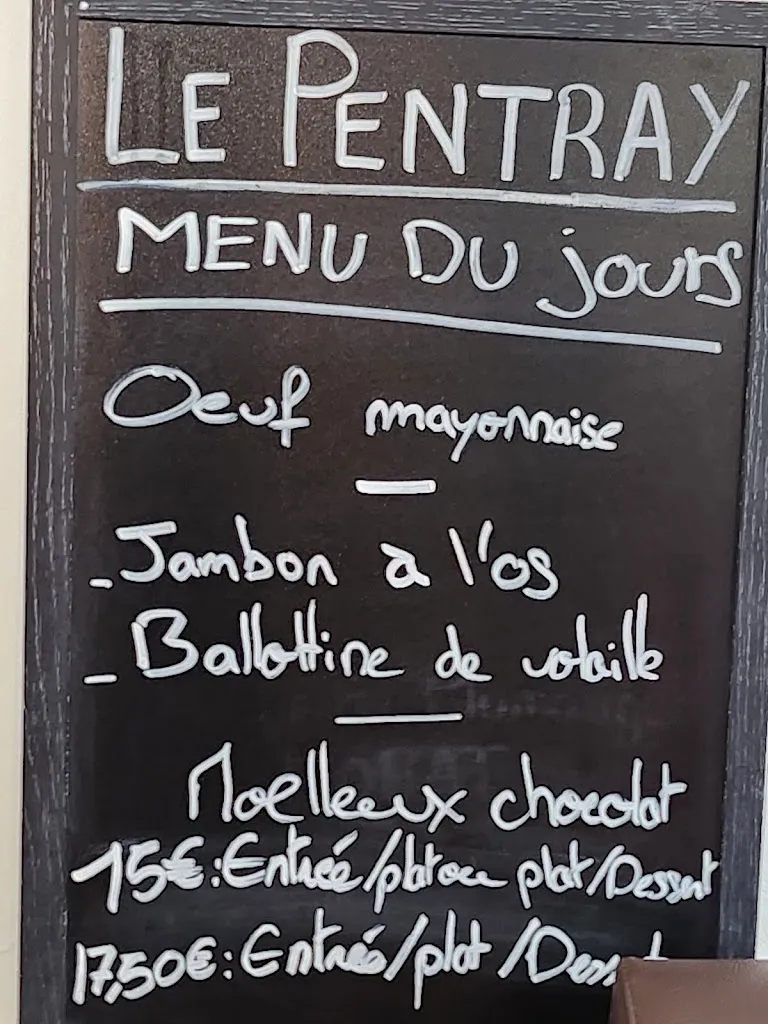 LE PENTRAY
MENU DU jours
Oeuf mayonnaise
- Jambon a l'os
- Ballottine de volaille
Moelleux chocolat
15€: Entrée/plat ou plat/Dessert
17,50€: Entrée/plat/Dess